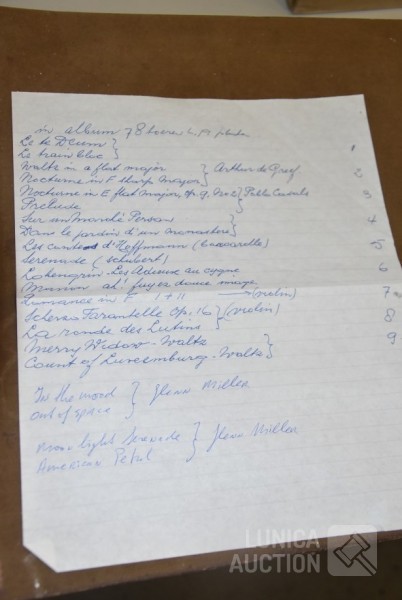 in album 78 toeren
Le te Deum }
Le train bleu } 1
Waltz in a flat major } Arthur de Greef 2
Nocturne in F sharp major }
Nocturne in E flat major, op. 9, No 2 } Pablo Casals 3
Prelude }
Sur un Marché Persan } 4
Dans le jardin d'un monastere }
Les contes d'Hoffmann (barcarolle) 5
Serenade (schubert)
Lohengrin - Les Adieux au cygne 6
Mimm at' fuyez douce image
Romance in F 1+11 (melin) 7
Scherzo Tarantelle Op. 16 } (melin) 8
La ronde des Lutins }
Merry Widow - Waltz } 9
Count of Luxemburg - Waltz }
In the mood } Glenn Miller
out of space }
Moon light Serenade } Glenn Miller
American Patrol }
LUNICA
AUCTION